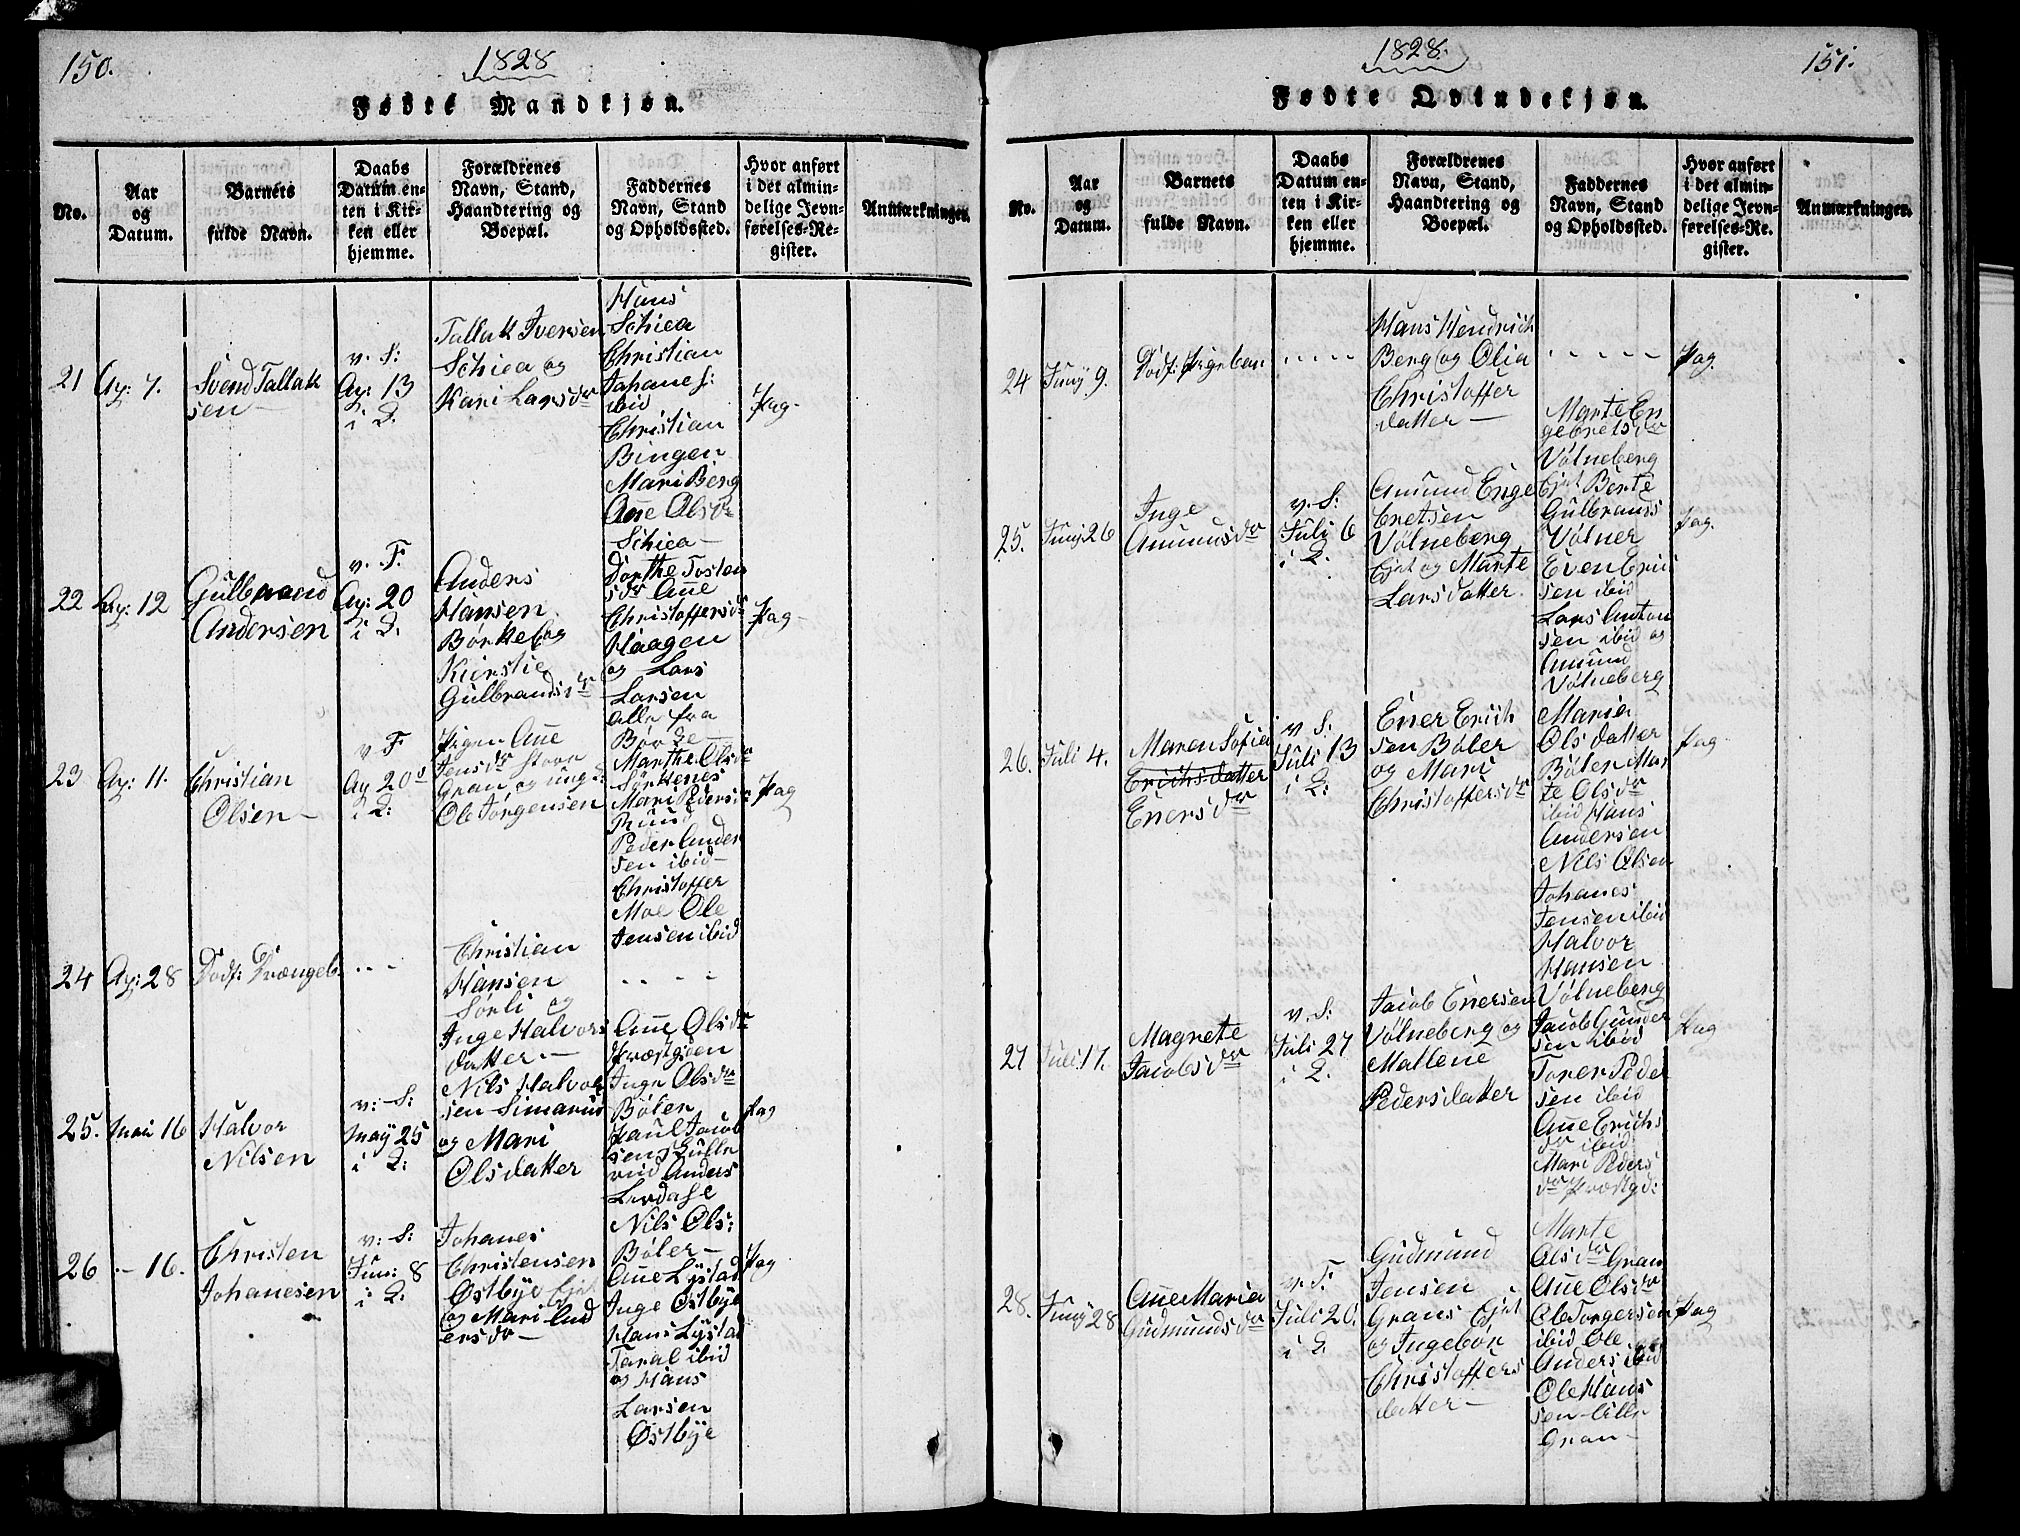 150.
1828
Fødte Mandkjøn.
No.
Aar
og
Datum.
Barnets
fulde Navn.
Daabs
Datum en-
ten i Kir-
ken eller
hjemme.
Forældrenes
Navn, Stand,
Haandtering og
Boepæl.
Faddernes
Navn, Stand
og Opholdssted.
Hvor anført
i det almin-
delige Jevn-
førelses-Re-
gister.
Anmærkninger.
21
Ap: 7.
Svend Tallak
sen
v. S:
Ap: 13
i
Tallak Iversen
Schiea og
Kari Larsdr
Hans
Schiea
Christian
Johanes:
ibid
Christian
Bingen
Mari Berg
Ane Olsdr
Schiea
Pag
22
Ap: 12
Gulbrand
Andersen
v. F.
Ap: 20
i
Anders
Hansen
Børke og
Kierstie
Gulbrandsdr
Dorthe Tosten
sdr Ane
Christoffersdr
Haagen
og Lars
Larsen
alle fra
Børke
Pag
23
Ap: 11.
Christian
Olsen
v. F
Ap 20
i
Pigen Ane
Jensdr Store
Gran, og ung:
Ole Jørgensen
Marthe Olsdr
Mari Pedersdr
Ruud
Peder Ander
sen ibid
Christoffer
Moe Ole
Jensen ibid
Pag
24
Ap: 28
Dødf: Drængeb.
Christian
Hansen
Sørli og
Inge Halvors
datter
25.
Mai 16
Halvor
Nilsen
v: S:
May 25
i
Nils Halvor
sen
og Mari
Olsdatter
Ane Olsdr
Præstgden
Inge Olsdr
Bøler
Paul Jacob
sen Gulle
rud Anders
Lerdahl
Nils Ols:
Bøler
Pag
26
16.
Christen
Johanesen
v: S:
Juni: 8
i
Johanes
Christensen
Østbye Ejet
og Mari And
ersdr
Ane Lystad
Inge Østbye
Hans Lystad
Taral ibid
og Hans
Larsen
Østbye
Pag
1828.
151.
Fødte Qvindekjøn.
No.
Aar
og
Datum.
Barnets
fulde Navn.
Daabs
Datum en-
ten i Kir-
ken eller
hjemme.
Forældrenes
Navn, Stand,
Haandtering og
Boepæl.
Faddernes
Navn, Stand
og Opholdssted.
Hvor anført
i det almin-
delige Jevn-
førelses-Re-
gister.
Anmærkninger.
24
Juny 9.
Dødf: Pigeban
Hans Hendrich
Berg og Olia
Christoffer
datter
Pag.
25.
Juny 26
Inge
Amundsdr
v. S:
Juli 6
i
Amund Enge
bretsen
Vølneberg
Ejet og Marte
Larsdatter.
Marte En
gebretsdr
Vølneberg
Ejet Berte
Gulbrands
Vølner
Even Eric
sen ibid
Lars Anton
sen ibid og
Amund
Vølneberg
Pag.
26.
Juli 4.
Maren Sofia
Erichsdatter
Enersdr
v. S:
Juli 13
i
Ener Erich
sen Bøler
og Mari
Christoffersdr
Maria
Olsdatter
Bølen Mar
te Olsdr
ibid Hans
Andersen
Nils Olsen
Johanes
Jensen ibid
Halvor
Hansen
Pag
27
Juli 17.
Magrete
Jacobsdr
v. S:
Juli 27
i
Jacob Enersen
Vølneberg og
Mallene
Pedersdatter
Vølneberg
Jacob Gunder
sen ibid
Torer Peder
sen ibid
Ane Erichs
dr ibid
Mari Peders
dr Præstgd:
Pag
28.
Juny 28
Ane Maria
Gudmundsdr
v. F.
Juli 20.
i
Gudmund
Jensen
Grans Ejet
og Ingebor
Christoffers
datter
Marte
Olsdr Gran
Ane Olsdr
Ole Torgersen
ibid Ole
Anders ibid
Ole Hans
sen Lille
Gran
Pag